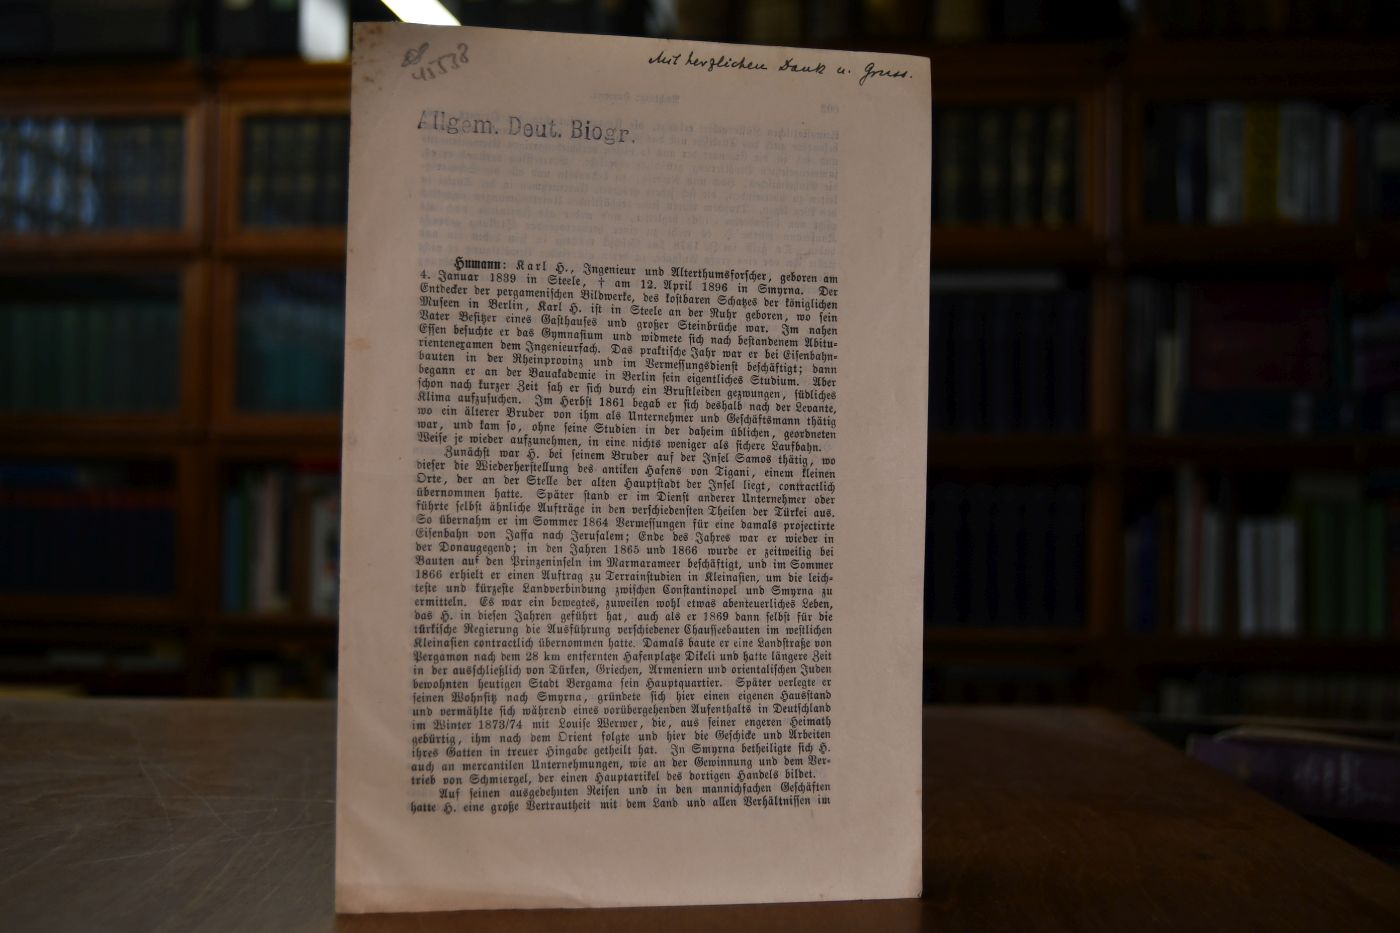 45538
Mit herzlichem Dank u. Gruss.
Allgem. Deut. Biogr.
Humann: Karl H., Ingenieur und Alterthumsforscher, geboren am
4. Januar 1839 in Steele, † am 12. April 1896 in Smyrna. Der
Entdecker der pergamenischen Bildwerke, des kostbaren Schatzes der königlichen
Museen in Berlin, Karl H. ist in Steele an der Ruhr geboren, wo sein
Vater Besitzer eines Gasthauses und großer Steinbrüche war. Im nahen
Essen besuchte er das Gymnasium und widmete sich nach bestandenem Abitu-
rientenexamen dem Ingenieurfach. Das praktische Jahr war er bei Eisenbahn-
bauten in der Rheinprovinz und im Vermessungsdienst beschäftigt; dann
begann er an der Bauakademie in Berlin sein eigentliches Studium. Aber
schon nach kurzer Zeit sah er sich durch ein Brustleiden gezwungen, südliches
Klima aufzusuchen. Im Herbst 1861 begab er sich deshalb nach der Levante,
wo ein älterer Bruder von ihm als Unternehmer und Geschäftsmann thätig
war, und kam so, ohne seine Studien in der daheim üblichen, geordneten
Weise je wieder aufzunehmen, in eine nichts weniger als sichere Laufbahn.
Zunächst war H. bei seinem Bruder auf der Insel Samos thätig, wo
dieser die Wiederherstellung des antiken Hafens von Tigani, einem kleinen
Orte, der an der Stelle der alten Hauptstadt der Insel liegt, contractlich
übernommen hatte. Später stand er im Dienst anderer Unternehmer oder
führte selbst ähnliche Aufträge in den verschiedensten Theilen der Türkei aus.
So übernahm er im Sommer 1864 Vermessungen für eine damals projectirte
Eisenbahn von Jaffa nach Jerusalem; Ende des Jahres war er wieder in
der Donaugegend; in den Jahren 1865 und 1866 wurde er zeitweilig bei
Bauten auf den Prinzeninseln im Marmarameer beschäftigt, und im Sommer
1866 erhielt er einen Auftrag zu Terrainstudien in Kleinasien, um die leich-
teste und kürzeste Landverbindung zwischen Constantinopel und Smyrna zu
ermitteln. Es war ein bewegtes, zuweilen wohl etwas abenteuerliches Leben,
das H. in diesen Jahren geführt hat, auch als er 1869 dann selbst für die
türkische Regierung die Ausführung verschiedener Chausseebauten im westlichen
Kleinasien contractlich übernommen hatte. Damals baute er eine Landstraße von
Pergamon nach dem 28 km entfernten Hafenplatze Dikeli und hatte längere Zeit
in der ausschließlich von Türken, Griechen, Armeniern und orientalischen Juden
bewohnten heutigen Stadt Bergama sein Hauptquartier. Später verlegte er
seinen Wohnsitz nach Smyrna, gründete sich hier einen eigenen Hausstand
und vermählte sich während eines vorübergehenden Aufenthalts in Deutschland
im Winter 1873/74 mit Louise Werwer, die, aus seiner engeren Heimath
gebürtig, ihm nach dem Orient folgte und hier die Geschicke und Arbeiten
ihres Gatten in treuer Hingabe getheilt hat. In Smyrna betheiligte sich H.
auch an mercantilen Unternehmungen, wie an der Gewinnung und dem Ver-
trieb von Schmiergel, der einen Hauptartikel des dortigen Handels bildet.
Auf seinen ausgedehnten Reisen und in den mannichfachen Geschäften
hatte H. eine große Vertrautheit mit dem Land und allen Verhältnissen im